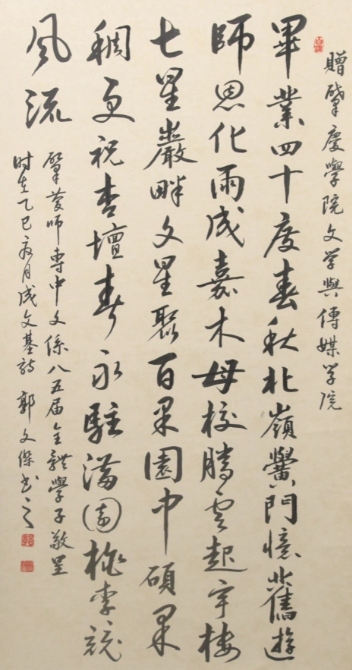 贈肇慶學院文学與傳媒学院
畢業四十度春秋北嶺黌門憶舊遊
師恩化雨成嘉木母校騰雲起宇樓
七星巖畔文星聚百果園中碩果
稠更祝杏壇春永駐滿園桃李競
風流
肇慶師專中文係八五届全體學子敬呈
时在乙巳月成文基詩 郭文傑书之